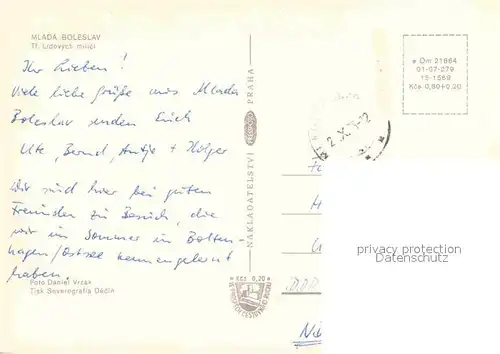 MLADÁ BOLESLAV
Tř. Lidových milicí
Ihr Lieben!
Viele liebe Grüße aus Mlada
Boleslav senden Euch
Ute, Bernd, Antje + Holger
Wir sind hier bei guten
Freunden zu Besuch, die
wir im Sommer in Bolten-
hagen/Ostsee kennengelernt
haben.
Foto Daniel Vrzák
Tisk Severografia Děčín
NAKLADATELSTVÍ
PRAHA
Om 21864
01-07-279
15-1569
Kčs 0,60+0,20
Kčs 0,20
DDR
privacy protection
Datenschutz